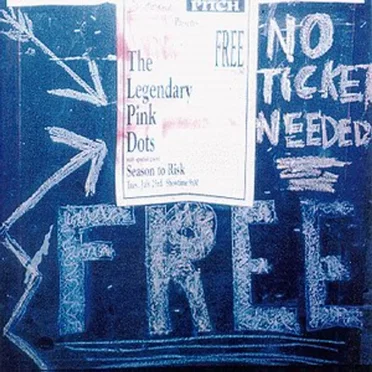 PITCH
FREE
The
Legendary
Pink
Dots
with special guest
Season to Risk
Tues. July 23rd. Showtime 9:00
NO
TICKET
NEEDED
FREE